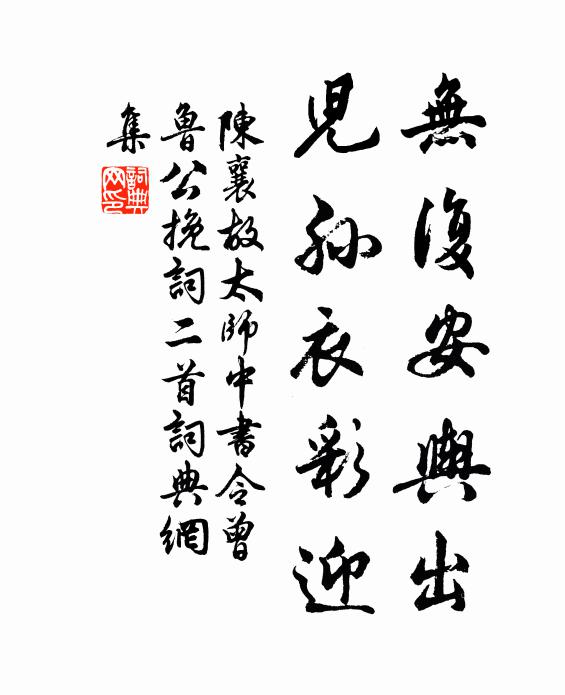 無復安輿出
兒孫衣彩迎
陳襄故太師中書令曾
魯公挽詞二首詞典網
集
詞典
网印